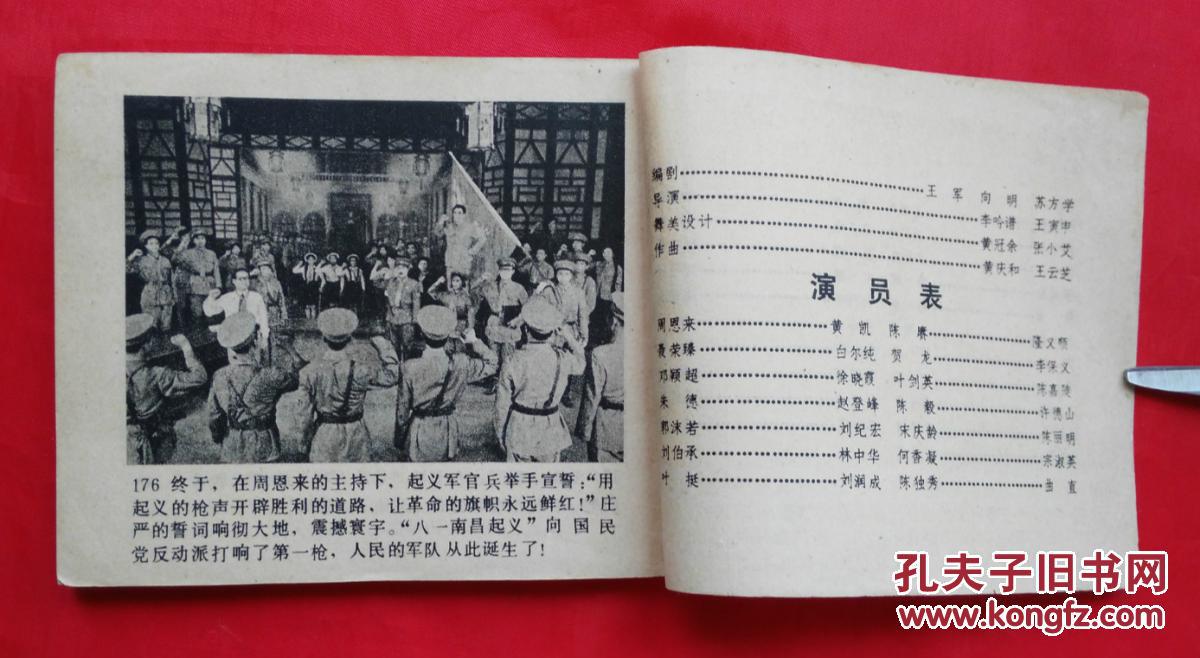 176 终于，在周恩来的主持下，起义军官兵举手宣誓：“用
起义的枪声开辟胜利的道路，让革命的旗帜永远鲜红！”庄
严的誓词响彻大地，震撼寰宇。“八一南昌起义”向国民
党反动派打响了第一枪，人民的军队从此诞生了！
编剧…………王军 向明 苏方学
导演…………李吟谱 王寅申
舞美设计…………黄冠余 张小艾
作曲…………黄庆和 王云芝
演员表
周恩来…………黄凯 陈赓…………隆义顺
聂荣臻…………白尔纯 贺龙…………李保义
邓颖超…………徐晓霞 叶剑英…………陈嘉陵
朱德…………赵登峰 陈毅…………许德山
郭沫若…………刘纪宏 宋庆龄…………陈丽明
刘伯承…………林中华 何香凝…………宗淑英
叶挺…………刘润成 陈独秀…………曲直
孔夫子旧书网
www.kongfz.com